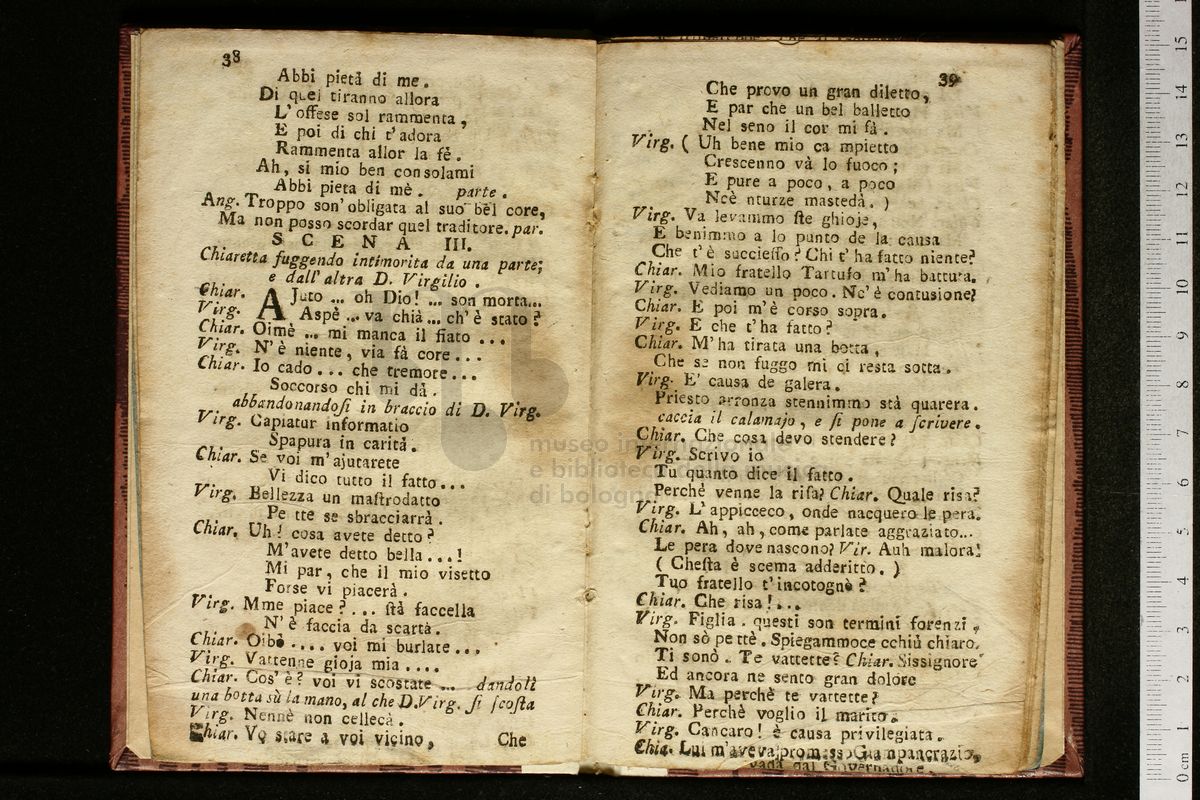 38
Abbi pietà di me.
Di quel tiranno allora
L'offese sol rammenta,
E poi di chi t'adora
Rammenta allor la fè.
Ah, si mio ben consolami
Abbi pieta di mè. parte.
Ang. Troppo son' obligata al suo bel core,
Ma non posso scordar quel traditore. par.
SCENA III.
Chiaretta fuggendo intimorita da una parte;
e dall' altra D. Virgilio.
Chiar. AJuto ... oh Dio! ... son morta...
Virg. Aspè ... va chià ... ch' è stato?
Chiar. Oimè ... mi manca il fiato ...
Virg. N' è niente, via fà core ...
Chiar. Io cado ... che tremore ...
Soccorso chi mi dà.
abbandonandosi in braccio di D. Virg.
Virg. Capiatur informatio
Spapura in carità.
Chiar. Se voi m'ajutarete
Vi dico tutto il fatto...
Virg. Bellezza un mastrodatto
Pe tte se sbracciarrà.
Chiar. Uh! cosa avete detto?
M'avete detto bella ...!
Mi par, che il mio visetto
Forse vi piacerà.
Virg. Mme piace? ... stà faccella
N' è faccia da scartà.
Chiar. Oibò .... voi mi burlate ...
Virg. Vattenne gioja mia ....
Chiar. Cos' è? voi vi scostate ... dandoli
una botta sù la mano, al che D. Virg. si scosta
Virg. Nennè non cellecà.
Chiar. Vo stare a voi vicino,
Che
39
Che provo un gran diletto,
E par che un bel balletto
Nel seno il cor mi fà.
Virg. ( Uh bene mio ca mpietto
Crescenno và lo fuoco;
E pure a poco, a poco
Ncè nturze mastedà. )
Virg. Va levammo ste ghioje,
E benimmo a lo punto de la causa
Che t'è succiesso? Chi t' ha fatto niente?
Chiar. Mio fratello Tartufo m'ha battuta.
Virg. Vediamo un poco. Nc' è contusione?
Chiar. E poi m'è corso sopra.
Virg. E che t'ha fatto?
Chiar. M'ha tirata una botta,
Che se non fuggo mi ci resta sotta.
Virg. E' causa de galera.
Priesto arronza stennimmo stà quarera.
caccia il calamajo, e si pone a scrivere.
Chiar. Che cosa devo stendere?
Virg. Scrivo io
Tu quanto dice il fatto.
Perchè venne la risa? Chiar. Quale risa?
Virg. L'appicceco, onde nacquero le pera.
Chiar. Ah, ah, come parlate aggraziato...
Le pera dove nascono? Vir. Auh malora!
( Chesta è scema adderitto. )
Tuo fratello t'incotognè?
Chiar. Che risa!...
Virg. Figlia. questi son termini forenzi,
Non sò pe ttè. Spiegammoce cchiù chiaro.
Ti sonò. Te vattette? Chiar. Sissignore
Ed ancora ne sento gran dolore
Virg. Ma perchè te vattette?
Chiar. Perchè voglio il marito.
Virg. Cancaro! è causa privilegiata.
Chia. Lui m'aveva promesso Giampancrazio,
museo internazionale
e biblioteca
di bologna